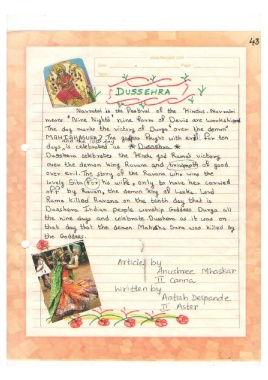 43
DUSSEHRA
Navratri is the Festival of the Hindus. Navratri
means "Nine Nights" nine form of Devis are worshipped
The day marks the victory of Durga over the demon
MAHISHASURA? The goddess Fought with evil for ten
days, and the 10th day is celebrated as * Dussehra. *
Dussehra celebrates the Hindu god Rama's victory
over the demon king Ravana and triumph of good
over evil. The story of the Ravana who wins the
lovely Sita (For) his wife, only to have her carried
off by Ravan, the demon king of Lanka. Lord
Rama killed Ravana on the tenth day that is
Dussehra Indian people worship Goddess Durga all
the nine days and celebrate Dussehra as it was on
that day that the demon Mahisha Sura was killed by
the Goddess.
Article by
Anushree Mhaskar
II canna
Written by
Aatish Despande
II Aster